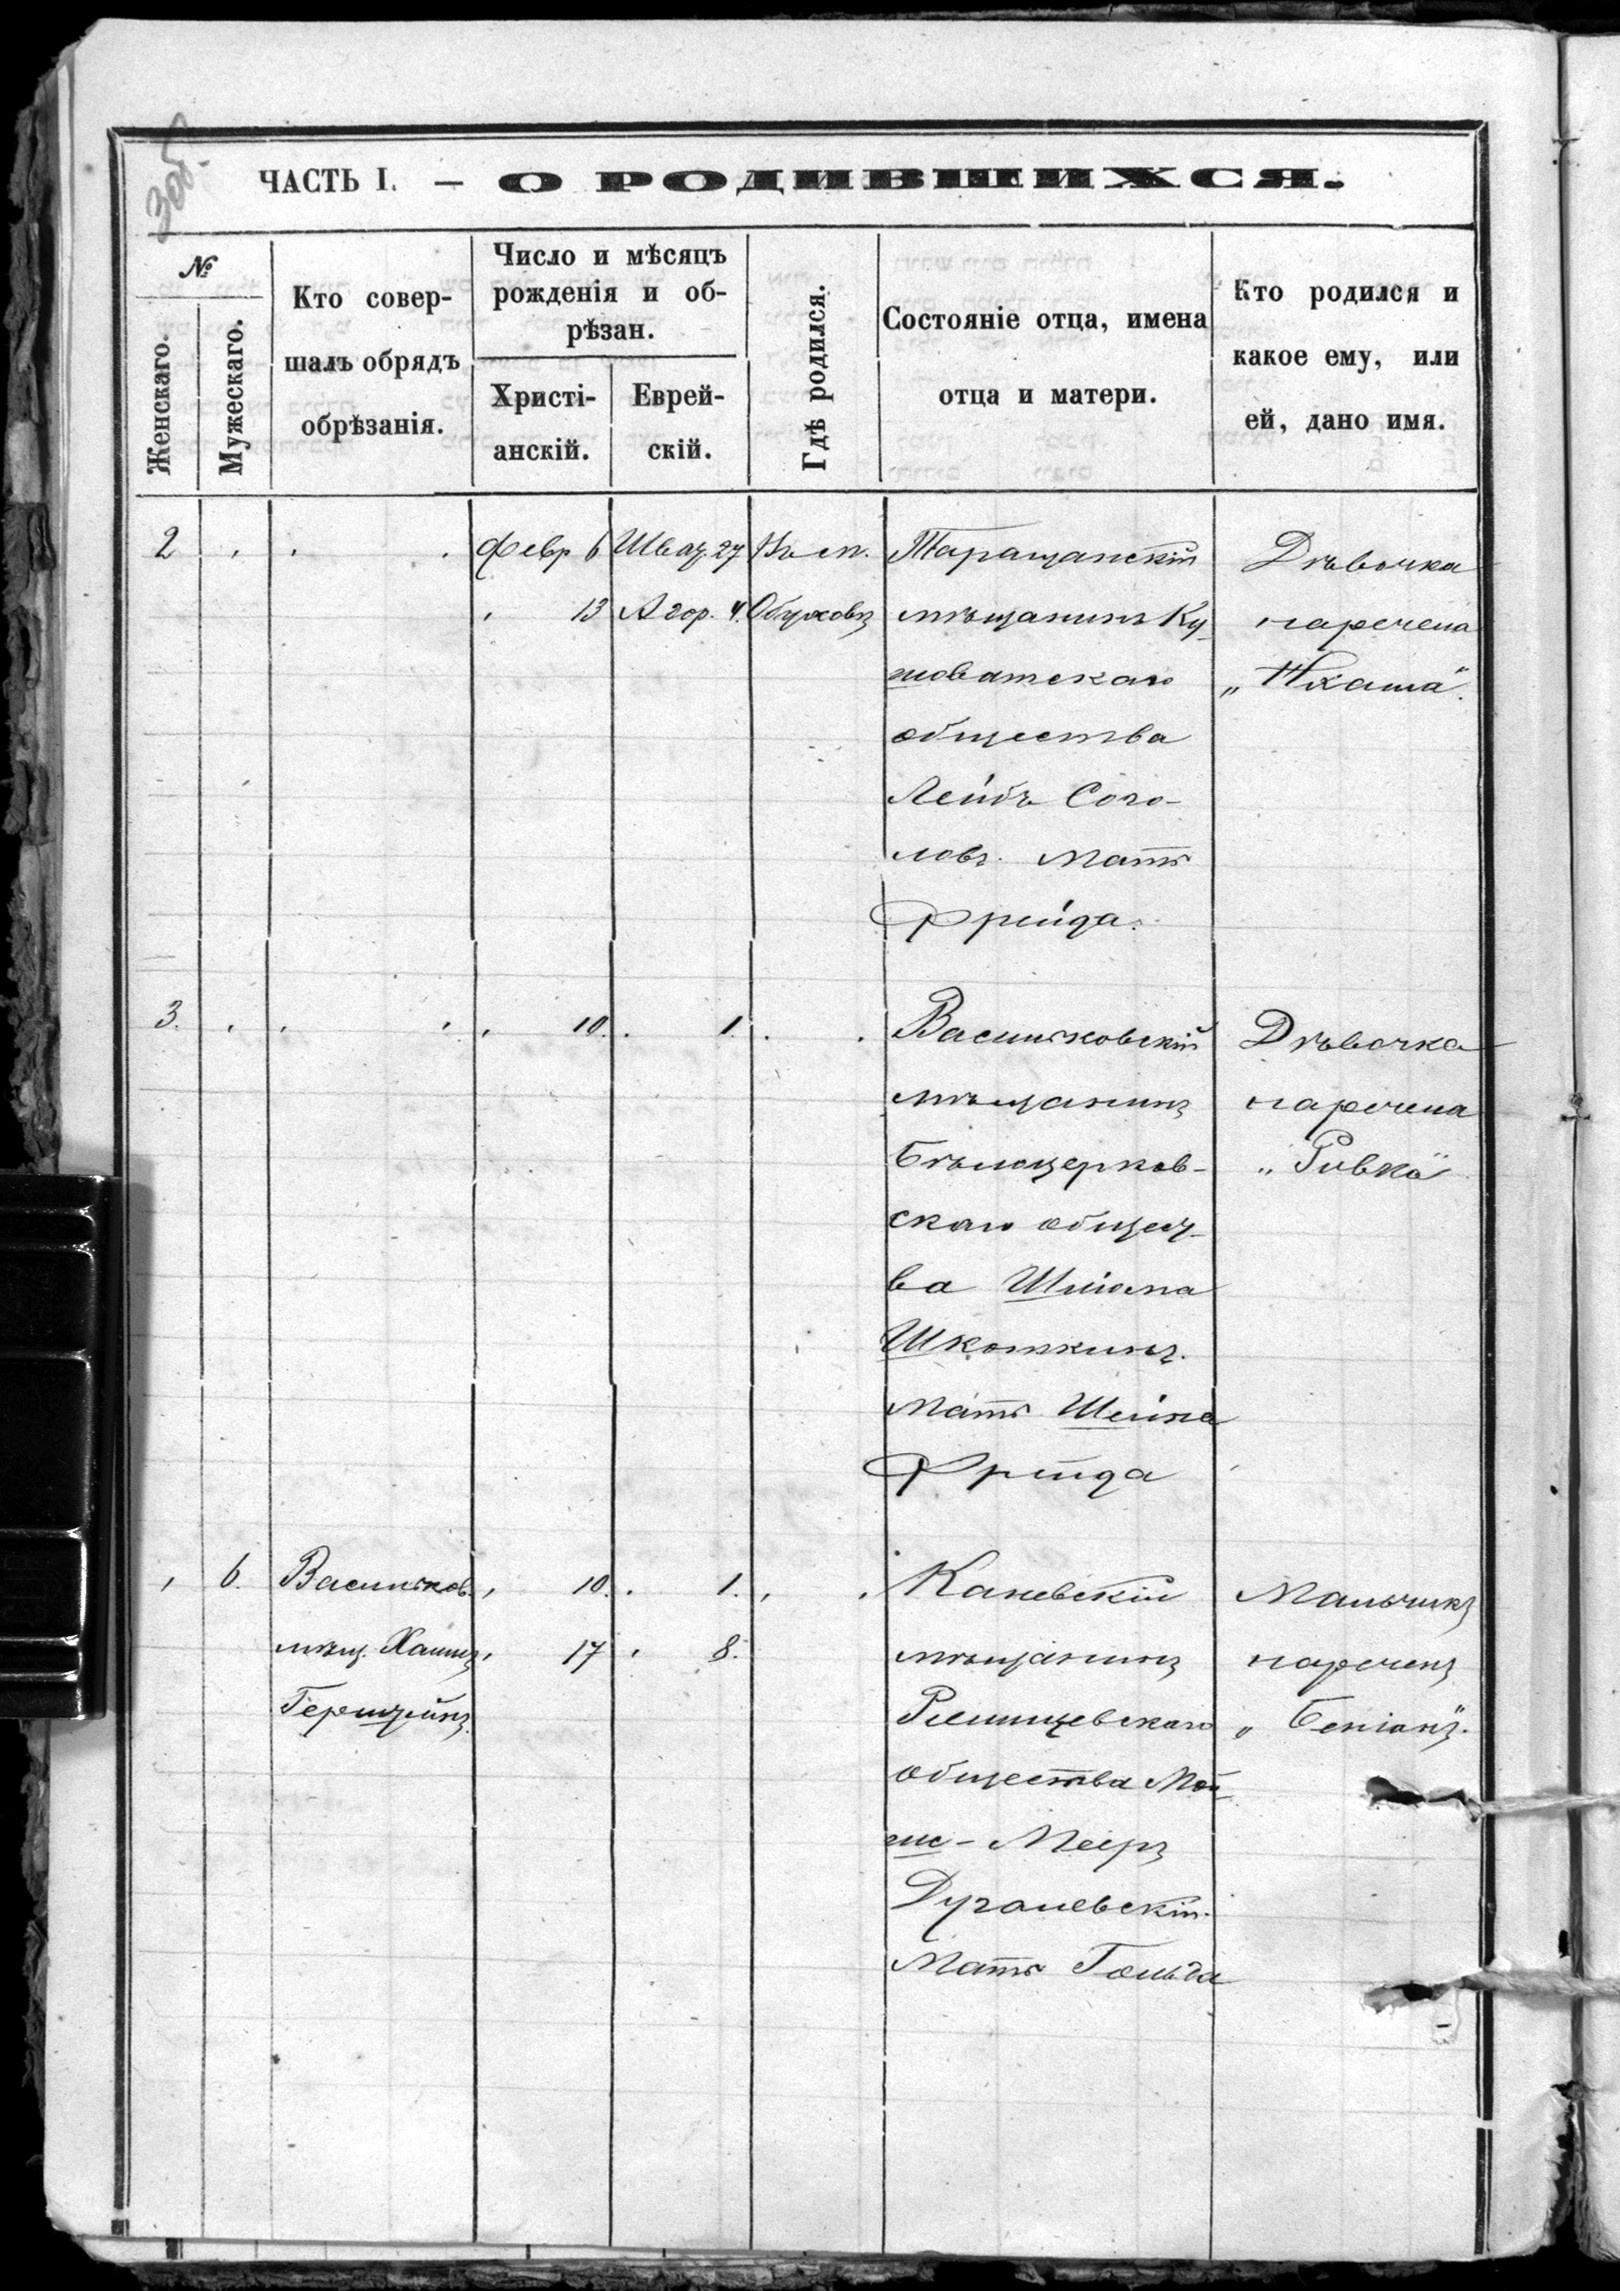 305.
ЧАСТЬ I. — О РОДИВШИХСЯ.
№
Женскаго.
Мужескаго.
Кто совер-
шалъ обрядъ
обрѣзанія.
Число и мѣсяцъ
рожденія и об-
рѣзан.
Христі-
анскій.
Еврей-
скій.
Гдѣ родился.
Состояніе отца, имена
отца и матери.
Кто родился и
какое ему, или
ей, дано имя.
2
Февр 6
13
Шват. 27
Адор. 4.
Въ м.
Обуховѣ
Таращанскій
мѣщанинъ Ку-
шоватскаго
общества
Лейбъ Сого-
ловъ. Мать
Фрейда.
Дѣвочка
наречена
3.
10.
1.
Васильковскій
мѣщанинъ
Бѣлоцерков-
скаго общест-
ва Шліома
Школкинъ.
Мать Шейна
Фрейда
Дѣвочка
наречена
„Ривка“
6.
Васильков.
мѣщ. Хаимъ
Герштейнъ.
10.
17
1.
8.
Каневскій
мѣщанинъ
Ржищевскаго
общества Мой-
ше-Меиръ
Дугалевскій.
Мать Гольда
Мальчикъ
нареченъ
„Беніонъ“.